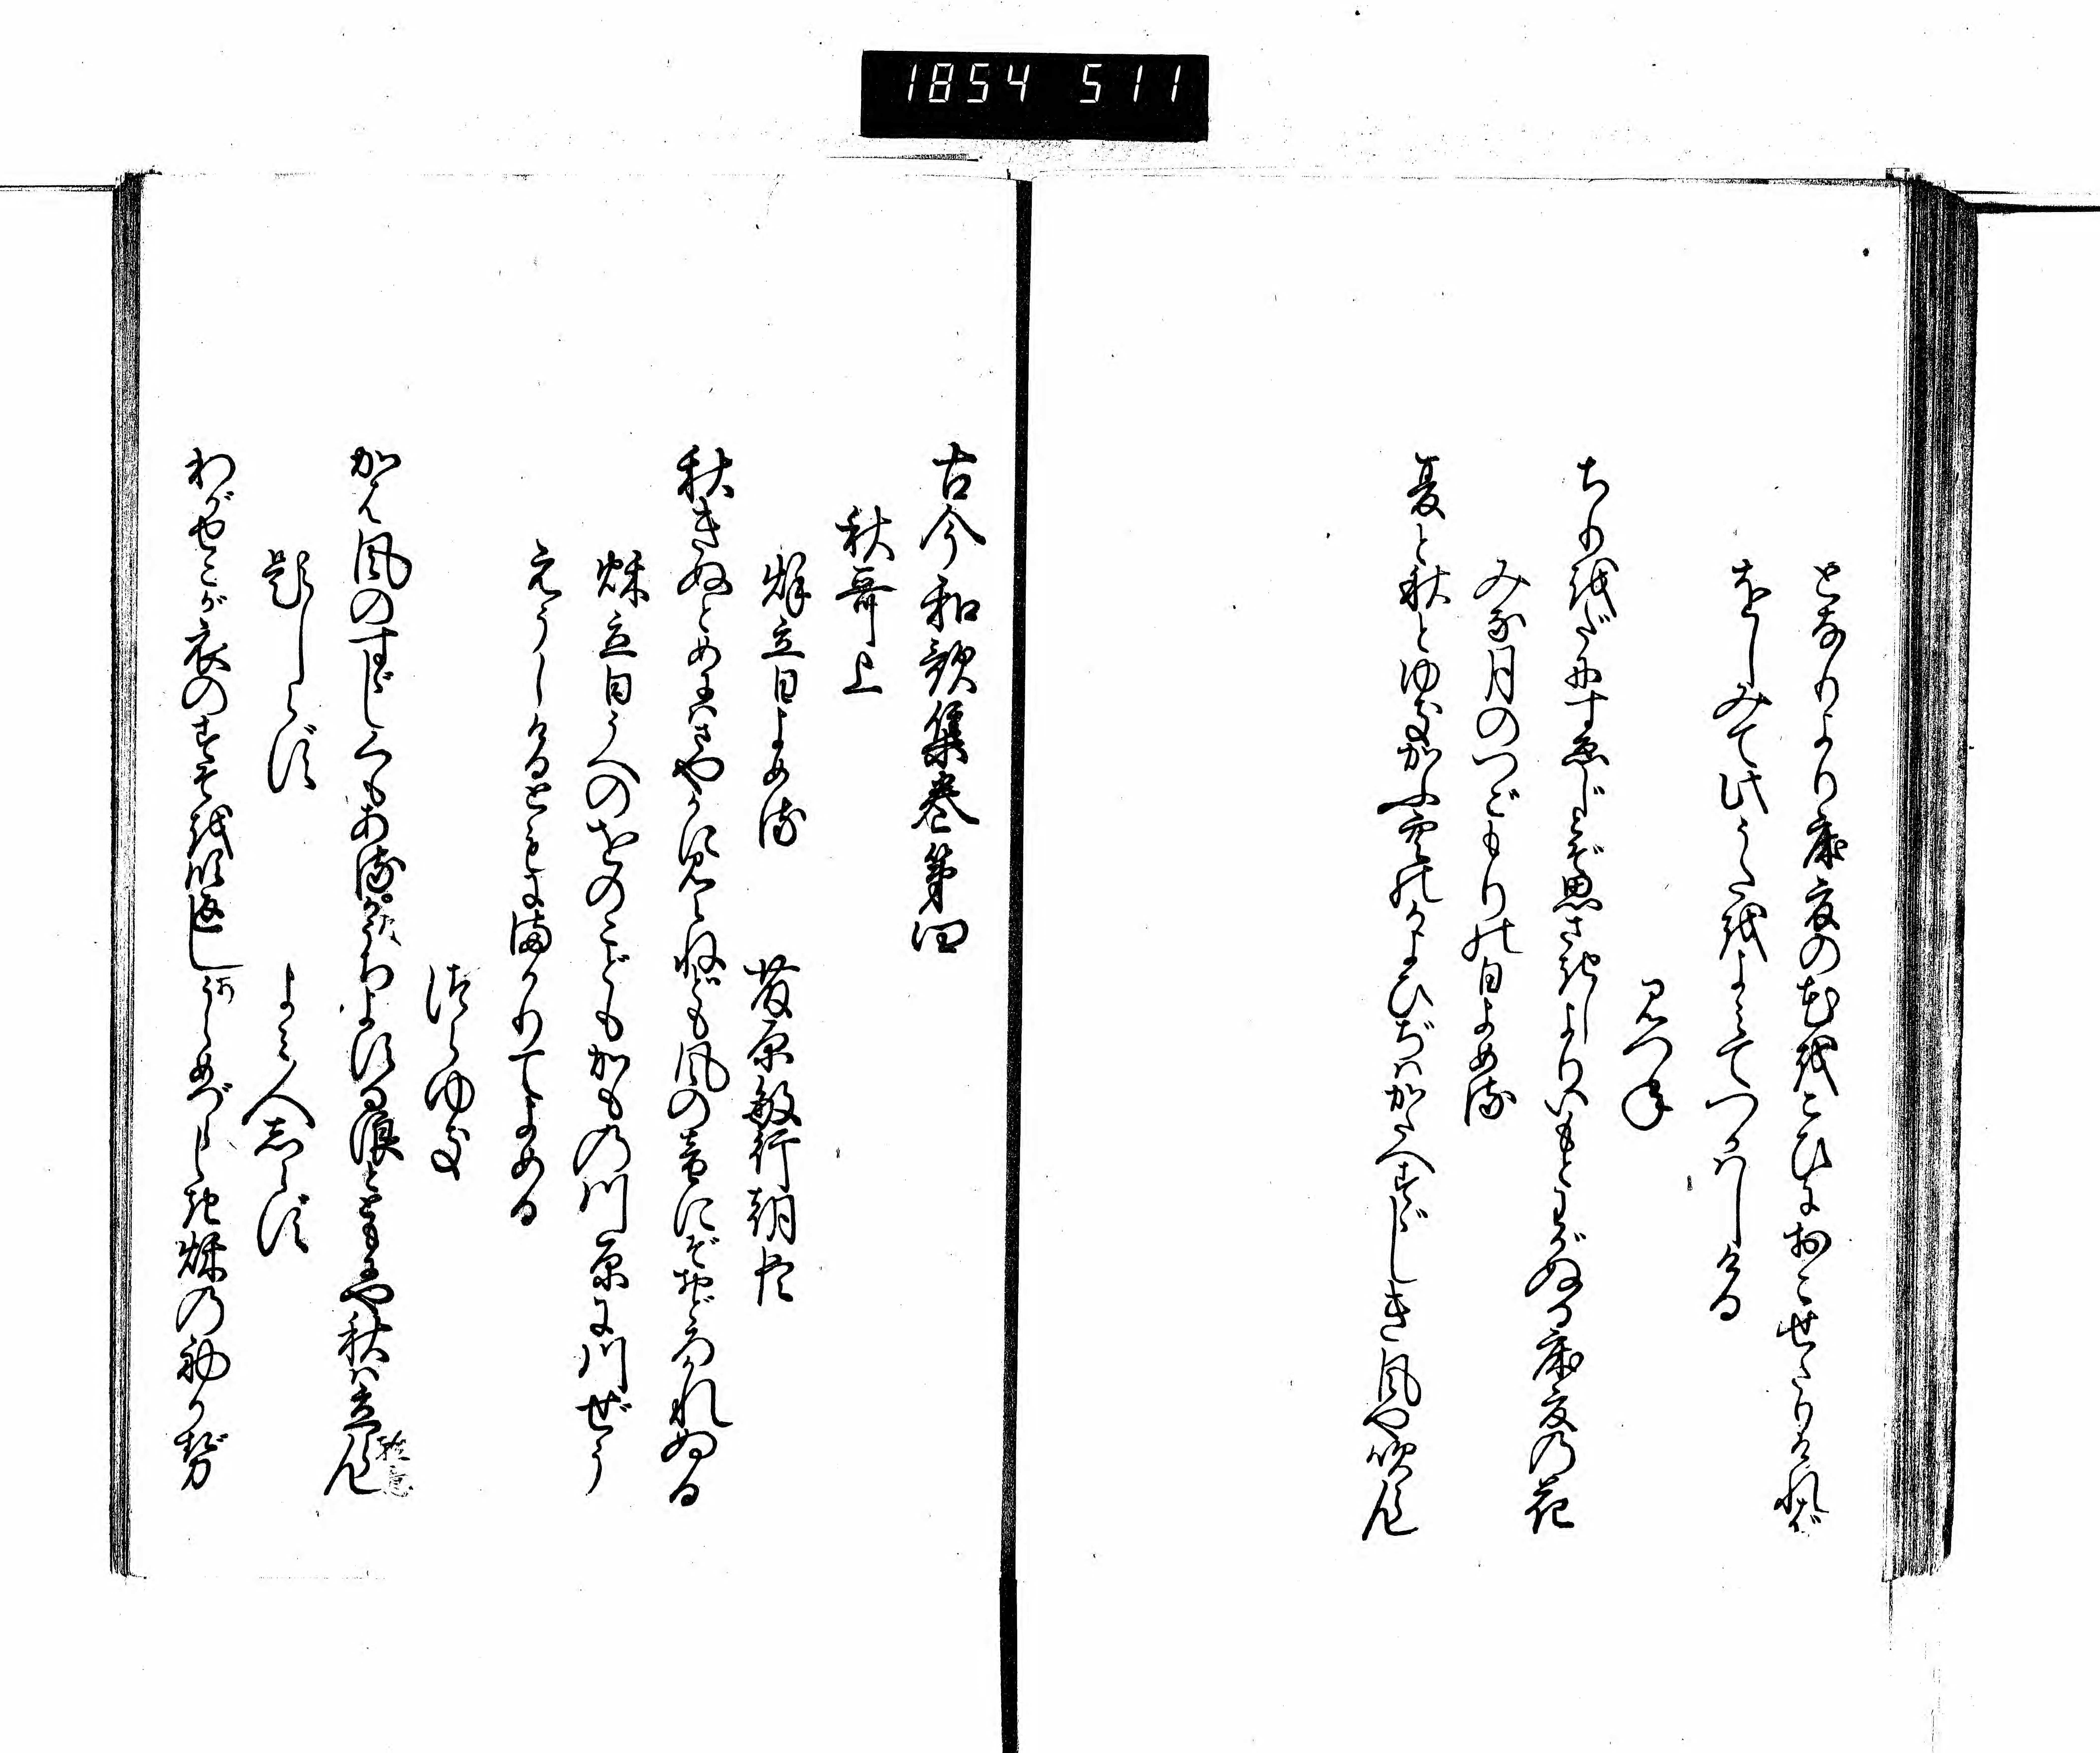 1854 511
となりより床夏の花をこひにおこせたりければ
をしみて此うたをよみてつかはしける
みつね
ちりをだにすゑじとぞ思さきしよりいもとわがぬる床夏の花
みな月のつごもりの日よめる
夏と秋とゆきかふ空のかよひぢはかたへすゞしき風や吹らん
古今和歌集巻第四
秋哥上
秌立日よめる
藤原敏行朝臣
秋きぬとめにはさやかに見えねども風の音にぞおどろかれぬる
秌立日うへのをのこどもかもの川原に川ぜう
えうしけるともにまかりてよめる
つらゆき
かは風のすゞしくもあるかうちよする浪とともにや秋は立らん
題しらず
よみ人しらず
わがせこが衣のすそを吹返しうらめづらしき秌の初かぜ